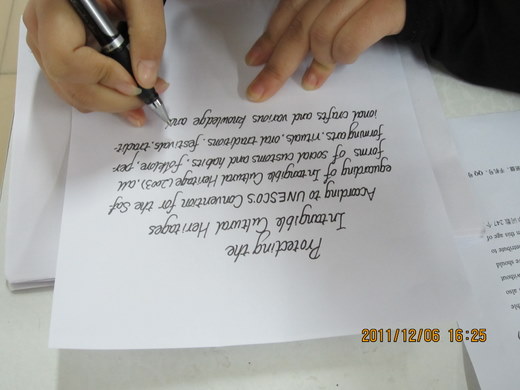 Protecting the
Intangible Cultural Heritages
According to UNESCO's Convention for the Saf
eguarding of Intangible Cultural Heritage (2003), all
forms of social customs and habits, folklore, per-
forming arts, rituals, oral traditions, festivals, tradit-
ional crafts and various knowledge and
2011/12/06 16:25